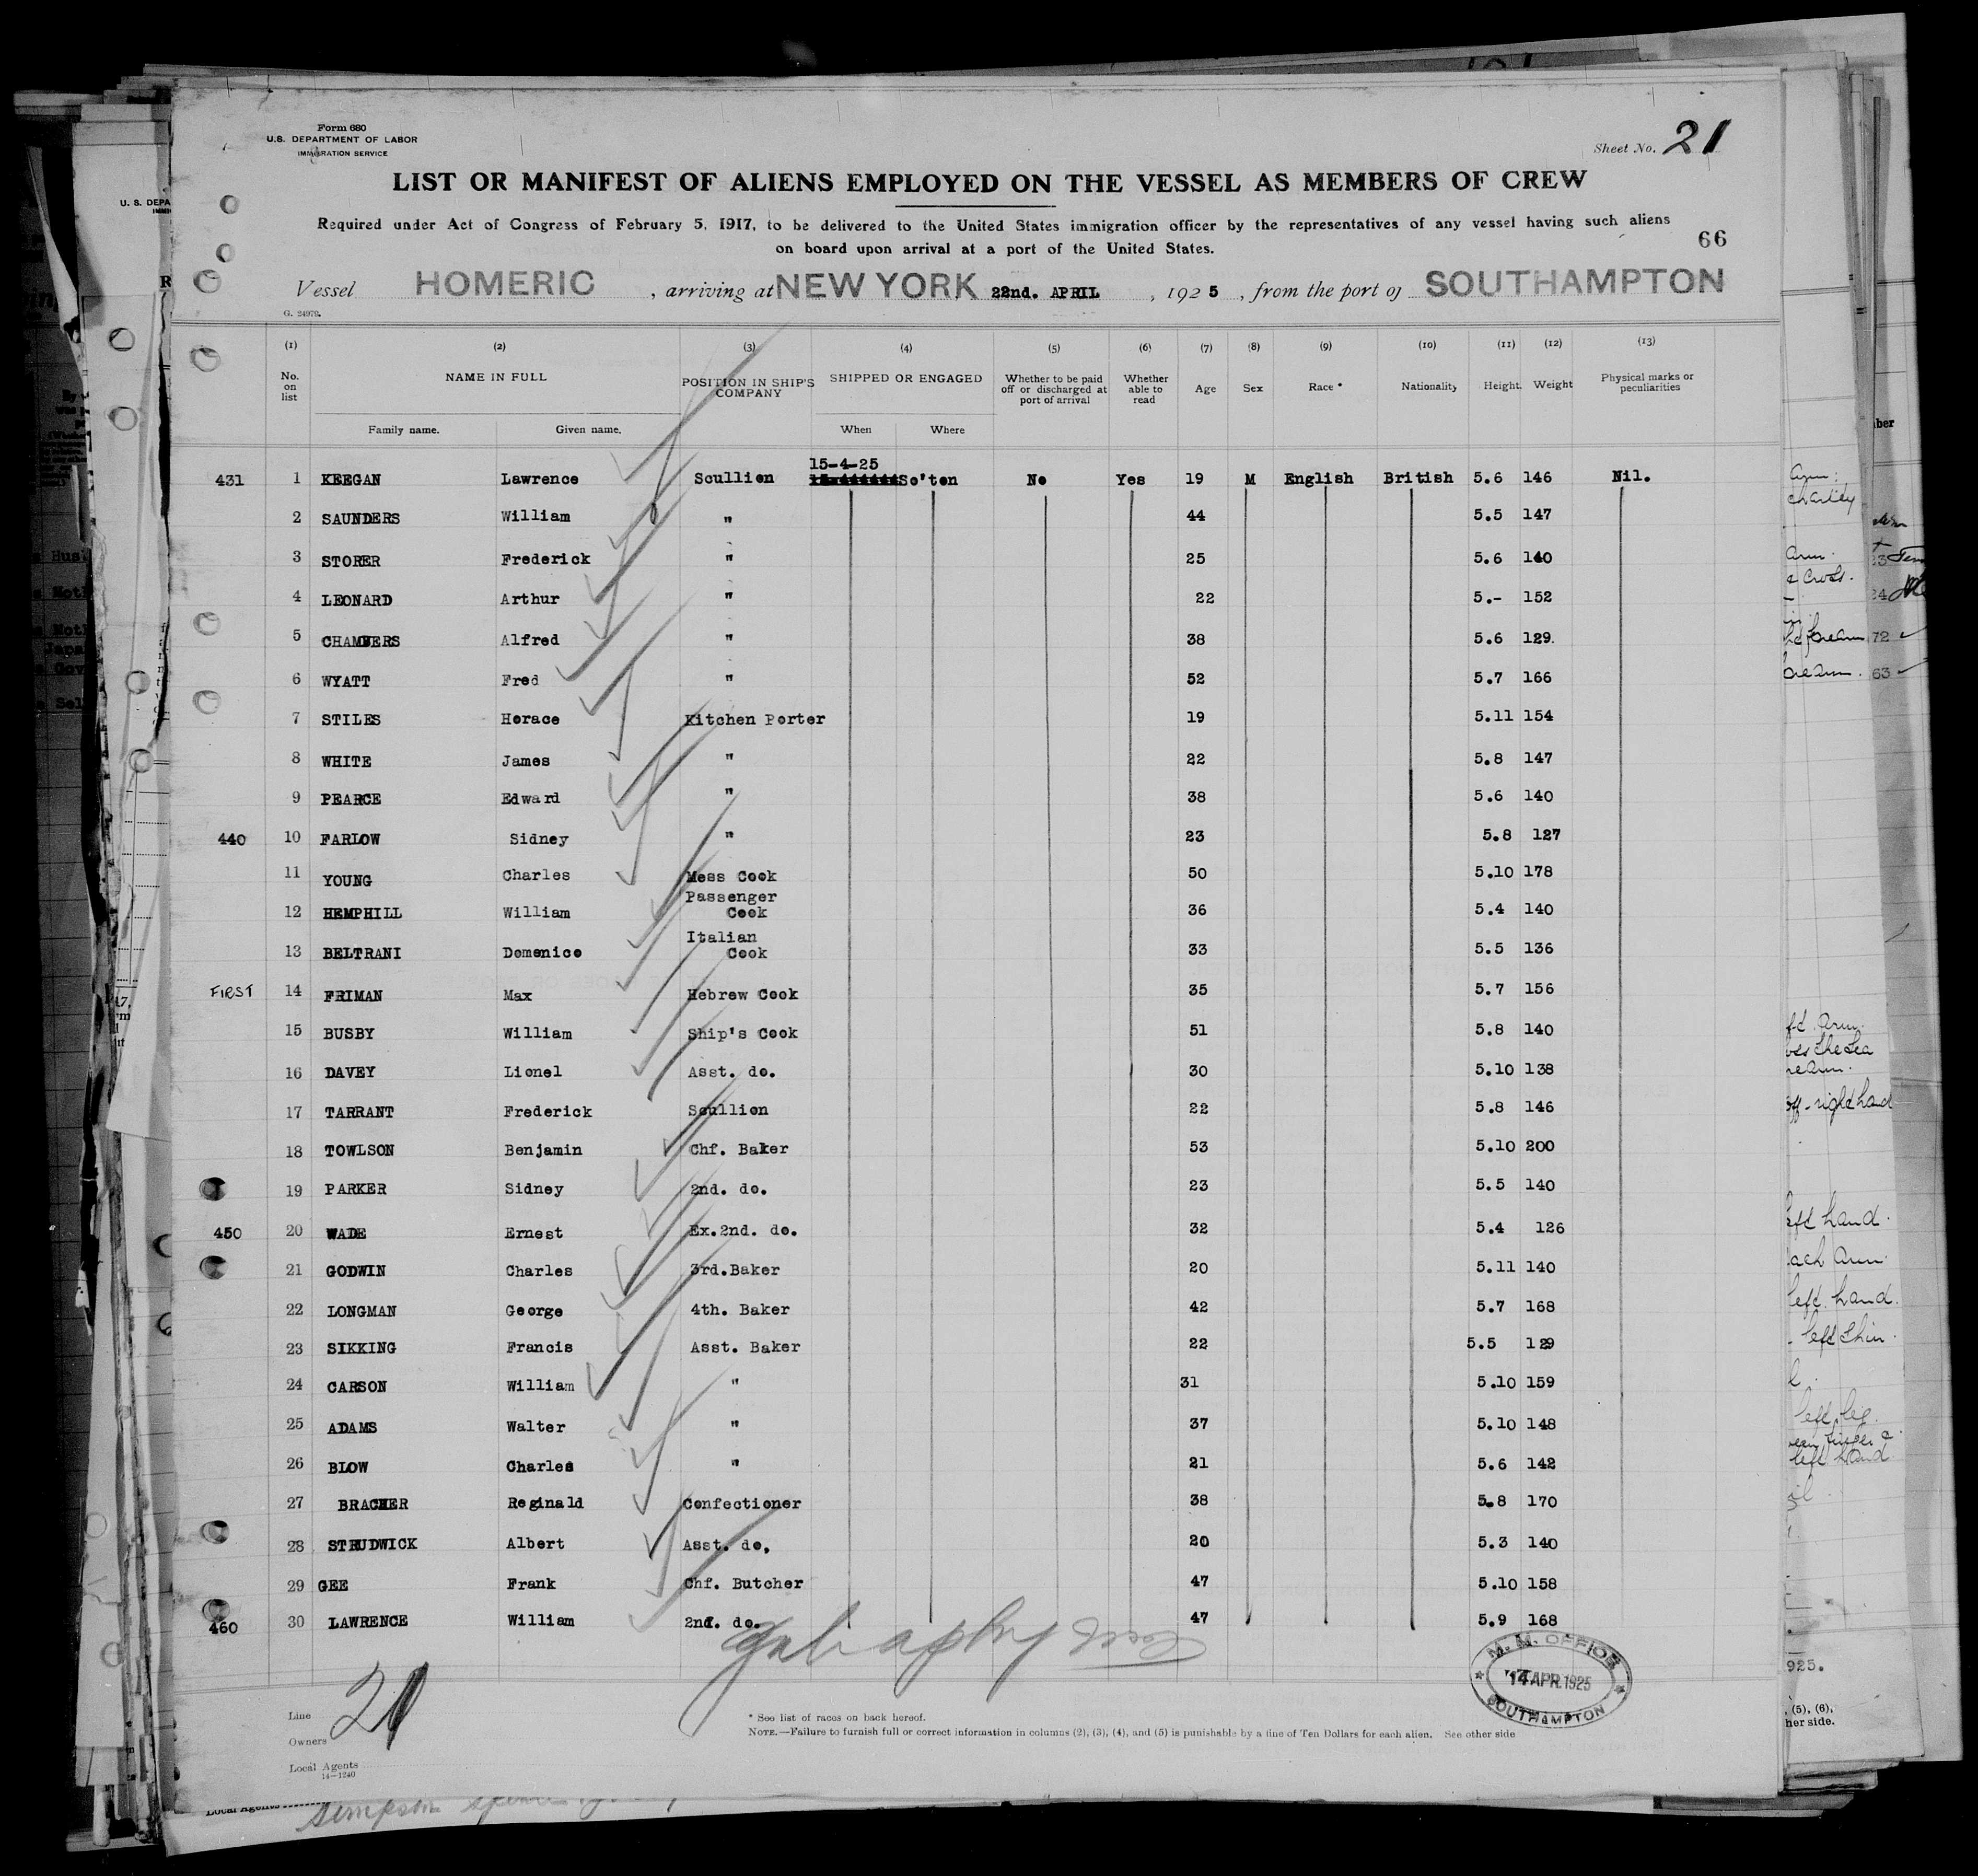 Form 680
U.S. DEPARTMENT OF LABOR
IMMIGRATION SERVICE
Sheet No. 21
LIST OR MANIFEST OF ALIENS EMPLOYED ON THE VESSEL AS MEMBERS OF CREW
Required under Act of Congress of February 5, 1917, to be delivered to the United States immigration officer by the representatives of any vessel having such aliens
on board upon arrival at a port of the United States.
66
Vessel HOMERIC , arriving at NEW YORK 22nd. APRIL , 1925 , from the port of SOUTHAMPTON
G. 24979.
(1) (2) (3) (4) (5) (6) (7) (8) (9) (10) (11) (12) (13)
No. on list NAME IN FULL POSITION IN SHIP'S COMPANY SHIPPED OR ENGAGED Whether to be paid off or discharged at port of arrival Whether able to read Age Sex Race * Nationality Height. Weight Physical marks or peculiarities
Family name. Given name. When Where
15-4-25
431 1 KEEGAN Lawrence Scullion So'ton No Yes 19 M English British 5.6 146 Nil.
2 SAUNDERS William " 44 5.5 147
3 STORER Frederick " 25 5.6 140
4 LEONARD Arthur " 22 5.- 152
5 CHAMBERS Alfred " 38 5.6 129.
6 WYATT Fred " 52 5.7 166
7 STILES Horace Kitchen Porter 19 5.11 154
8 WHITE James " 22 5.8 147
9 PEARCE Edward " 38 5.6 140
440 10 FARLOW Sidney " 23 5.8 127
11 YOUNG Charles Mess Cook 50 5.10 178
12 HEMPHILL William Passenger Cook 36 5.4 140
13 BELTRANI Domenico Italian Cook 33 5.5 136
FIRST 14 FRIMAN Max Hebrew Cook 35 5.7 156
15 BUSBY William Ship's Cook 51 5.8 140
16 DAVEY Lionel Asst. do. 30 5.10 138
17 TARRANT Frederick Scullion 22 5.8 146
18 TOWLSON Benjamin Chf. Baker 53 5.10 200
19 PARKER Sidney 2nd. do. 23 5.5 140
450 20 WADE Ernest Ex.2nd. do. 32 5.4 126
21 GODWIN Charles 3rd.Baker 20 5.11 140
22 LONGMAN George 4th. Baker 42 5.7 168
23 SIKKING Francis Asst. Baker 22 5.5 129
24 CARSON William " 31 5.10 159
25 ADAMS Walter " 37 5.10 148
26 BLOW Charles " 21 5.6 142
27 BRACHER Reginald Confectioner 38 5.8 170
28 STRUDWICK Albert Asst. do, 20 5.3 140
29 GEE Frank Chf. Butcher 47 5.10 158
460 30 LAWRENCE William 2nd. do. 47 5.9 168
M. M. OFFICE
14 APR. 1925
SOUTHAMPTON
Line
21
Owners
Local Agents
14-1240
* See list of races on back hereof.
NOTE.—Failure to furnish full or correct information in columns (2), (3), (4), and (5) is punishable by a fine of Ten Dollars for each alien. See other side